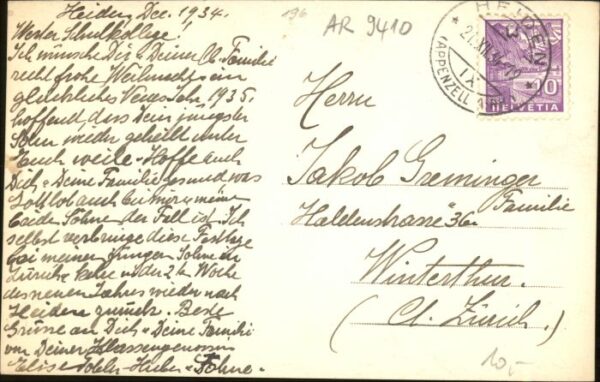 Heiden, Dez. 1934.
Werter Schulkollege!
Ich wünsche Dir u. Deiner lb. Familie
recht frohe Weihnacht u. ein
glückliches Neues Jahr 1935.
hoffend, dass Dein jüngster
Sohn wieder geheilt unter
Euch weile. Hoffe auch
Dich u. Deine Familie gesund was
Gottlob auch bei mir u. meine
beide Söhne der Fall ist. Ich
selbst verbringe diese Festtage
bei meinem jüngsten Sohne in
Zürich u. kehre in der 2t. Woche
des neuen Jahres wieder nach
Heiden zurück. Beste
Grüsse an Dich u. Deine Familie
von Deiner Klassengenossin
Elise Huber Söhne
196
AR 9410
HEIDEN
(APPENZELL
10
HELVETIA
Herrn
Jakob Greminger
Familie
Haldenstrasse 36
Winterthur.
(Ct. Zürich.)
10,-